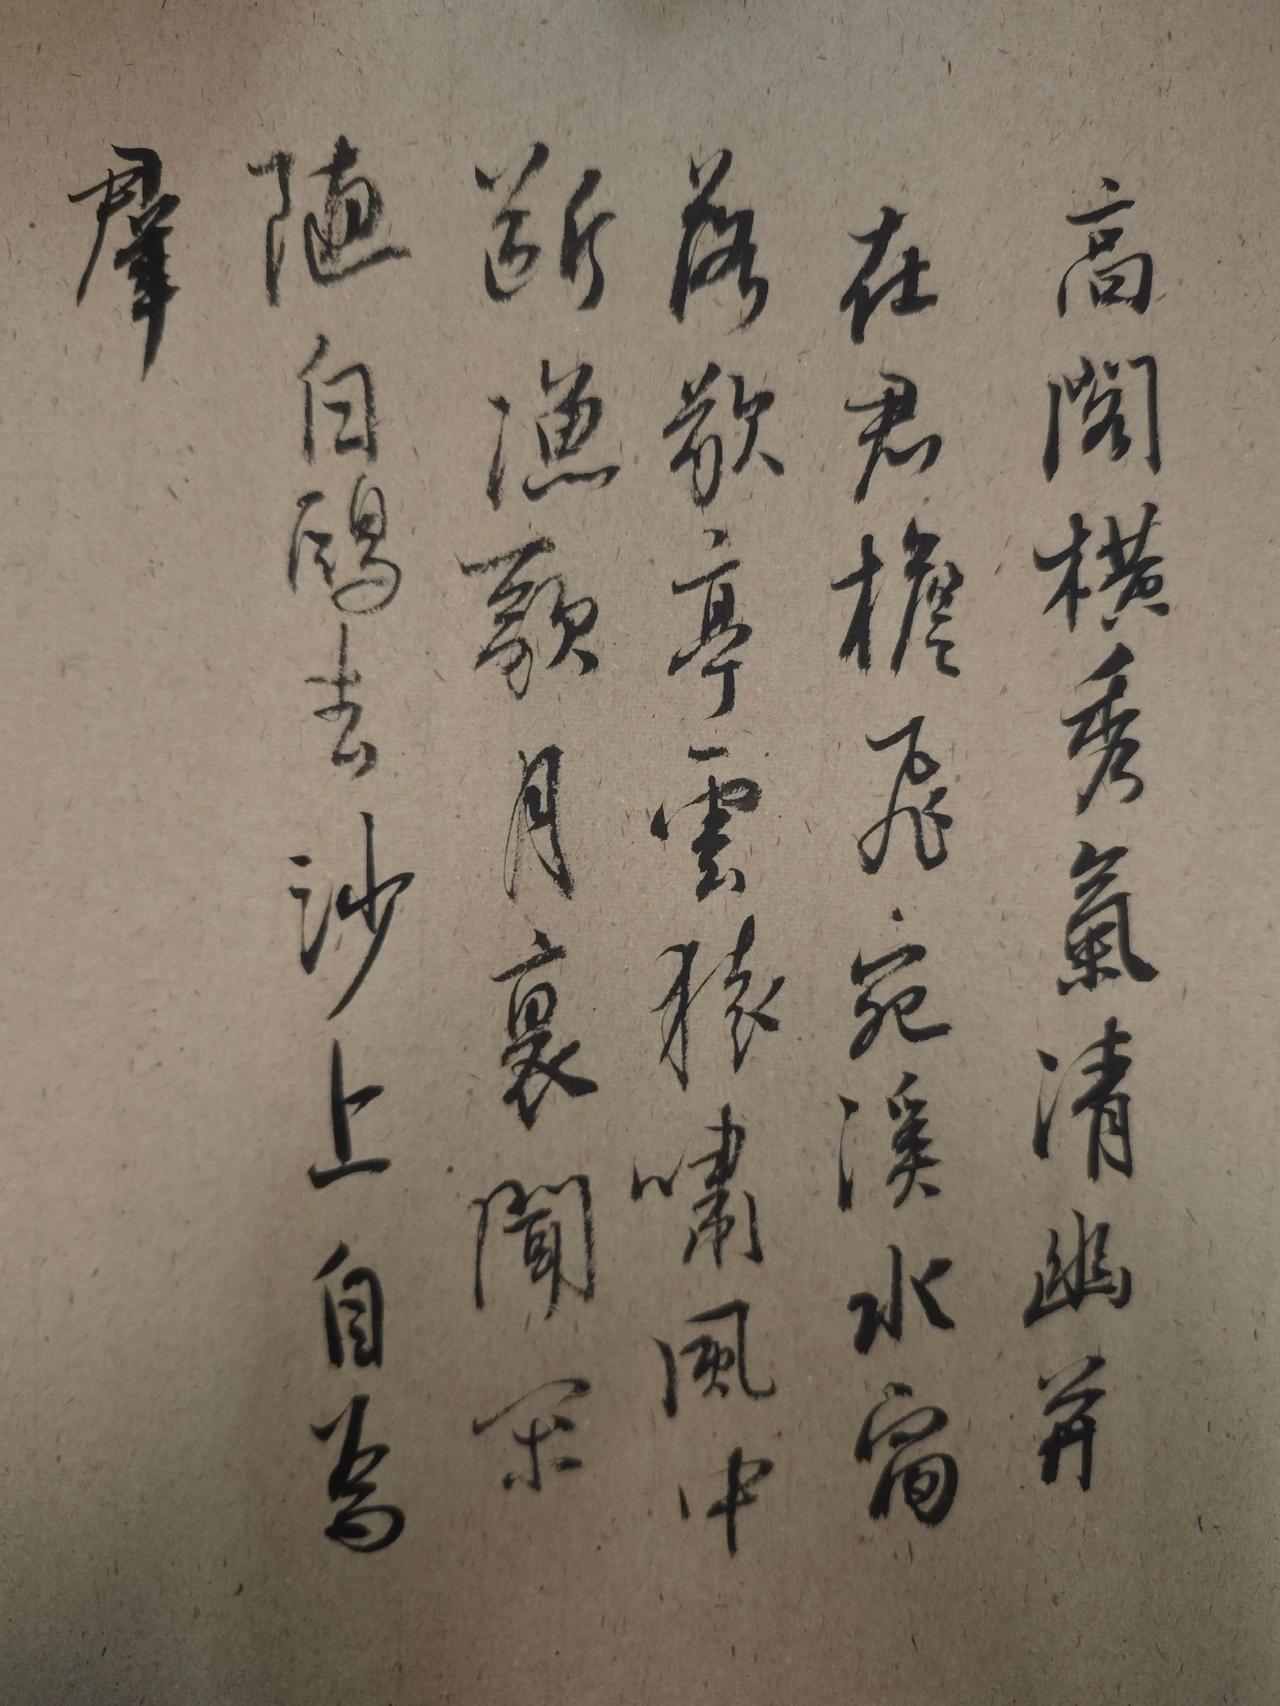 高閣橫秀氣清幽并
在君檐飛宛溪水窗
落敬亭雲猿嘯風中
斷漁歌月裏聞閑
隨白鷗去沙上自為
羣